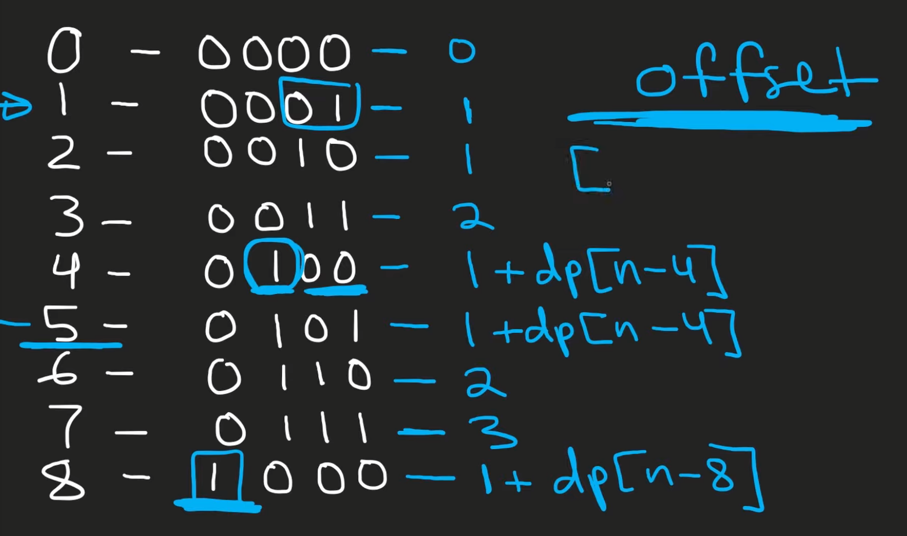 0 - 0000 - 0
offset
1 - 0001 - 1
2 - 0010 - 1
[
3 - 0011 - 2
4 - 0100 - 1 + dp[n-4]
5 - 0101 - 1 + dp[n-4]
6 - 0110 - 2
7 - 0111 - 3
8 - 1000 - 1 + dp[n-8]